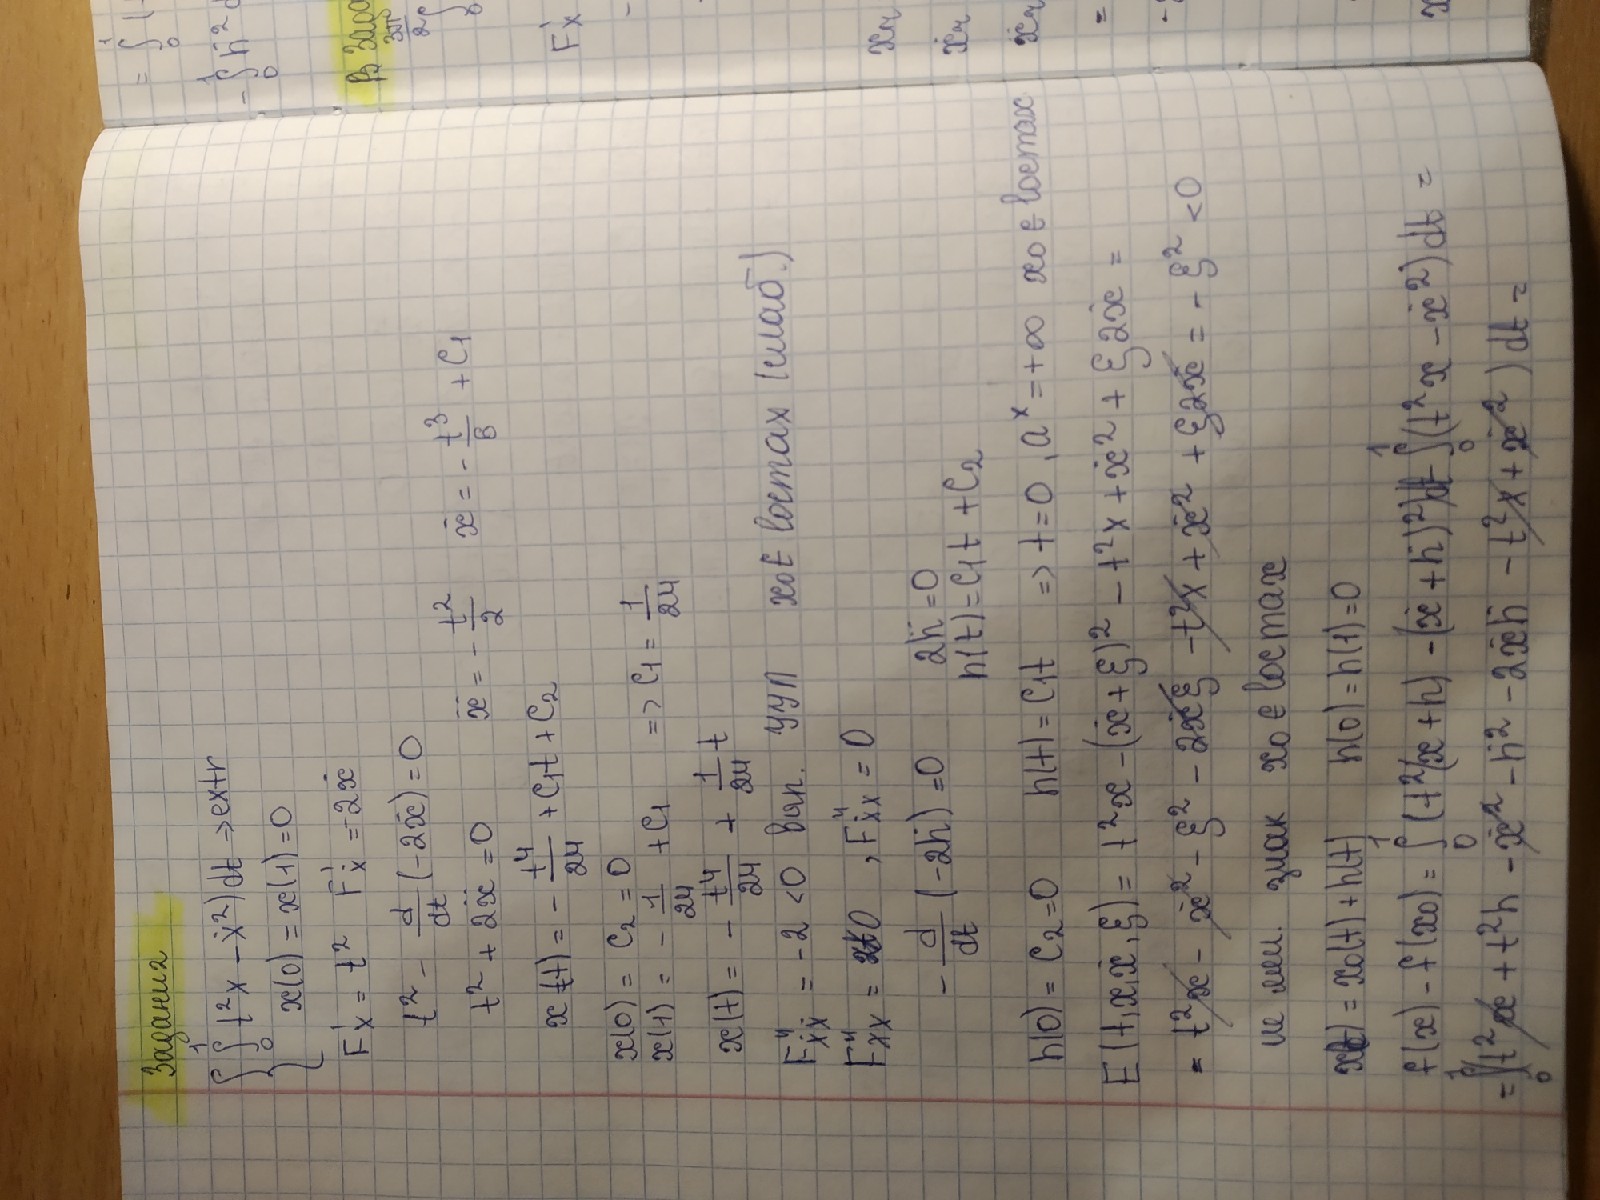 Задания
{ ∫₀¹ t²x – ẋ²) dt → extr
x(0) = x(1) = 0
F'ₓ = t²   F'ẋ = –2ẋ
t² – d/dt (–2ẋ) = 0
t² + 2ẍ = 0   ẍ = – t²/2   ẋ = – t³/6 + C₁
x(t) = – t⁴/24 + C₁t + C₂
x(0) = C₂ = 0
x(1) = – 1/24 + C₁   => C₁ = 1/24
x(t) = – t⁴/24 + 1/24 t
F''ẋẋ = –2 < 0 вып. УУЛ   x₀ ∈ locmax (слаб.)
F''ₓₓ = 0 , F''ẋₓ = 0
– d/dt (–2ḣ) = 0   2ḧ = 0
h(t) = C₁t + C₂
h(0) = C₂ = 0   h(t) = C₁t   => t = 0 , a* = +∞   x₀ ∈ locmax
E(t, x, ẋ, ξ) = t²x – (ẋ + ξ)² – t²x + ẋ² + ξ2ẋ =
= t²x – ẋ² – ξ² – 2ẋξ – t²x + ẋ² + ξ2ẋ = – ξ² < 0
знак x₀ ∈ locmax
x(t) = x₀(t) + h(t)   h(0) = h(1) = 0
f(x) – f(x₀) = ∫₀¹ (t²(x + h) – (ẋ + ḣ)²) dt – ∫₀¹ (t²x – ẋ²) dt =
= ∫₀¹ (t²x + t²h – ẋ² – ḣ² – 2ẋḣ – t²x + ẋ²) dt =
= ∫₀¹ (
– ∫₀¹ ḣ²
3π/2
∫₀
F'ₓ